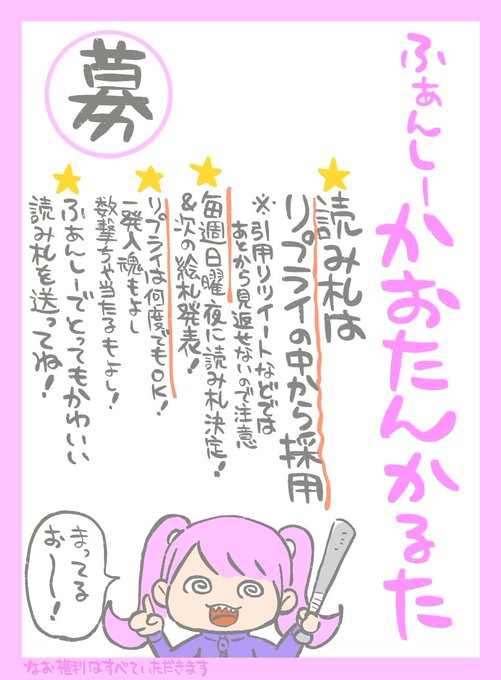 ふぁんしーかおたんかるた
募
読み札は
リプライの中から採用
※引用リツイートなどでは
あとから見返せないので注意
毎週日曜夜に読み札決定!
&次の絵札発表!
リプライは何度でもOK!
一発入魂もよし
数撃ちゃ当たるもよし!
ふぁんしーでとってもかわいい
読み札を送ってね!
まってる
お〜!
なお権利はすべていただきます